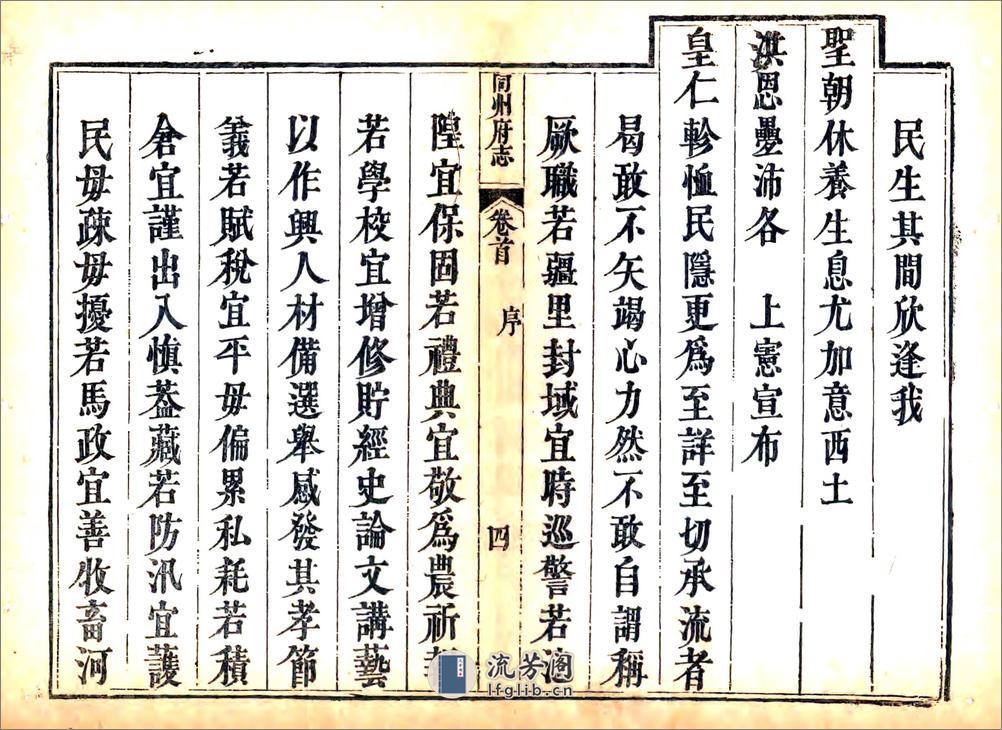 民生其間欣逢我
聖朝休養生息尤加意西土
洪恩疊沛各　上憲宣布
皇仁軫恤民隱更爲至詳至切承流者
曷敢不矢竭心力然不敢自謂稱
厥職若疆里封域宜時巡警若
同州府志
卷首
序
四
隍宜保固若禮典宜敬爲農祈
若學校宜增修貯經史論文講藝
以作興人材備選舉感發其孝節
義若賦稅宜平毋偏累私耗若積
倉宜謹出入愼蓋藏若防汛宜護
民毋疎毋擾若馬政宜善牧畜河
流芳阁
lfglib.cn